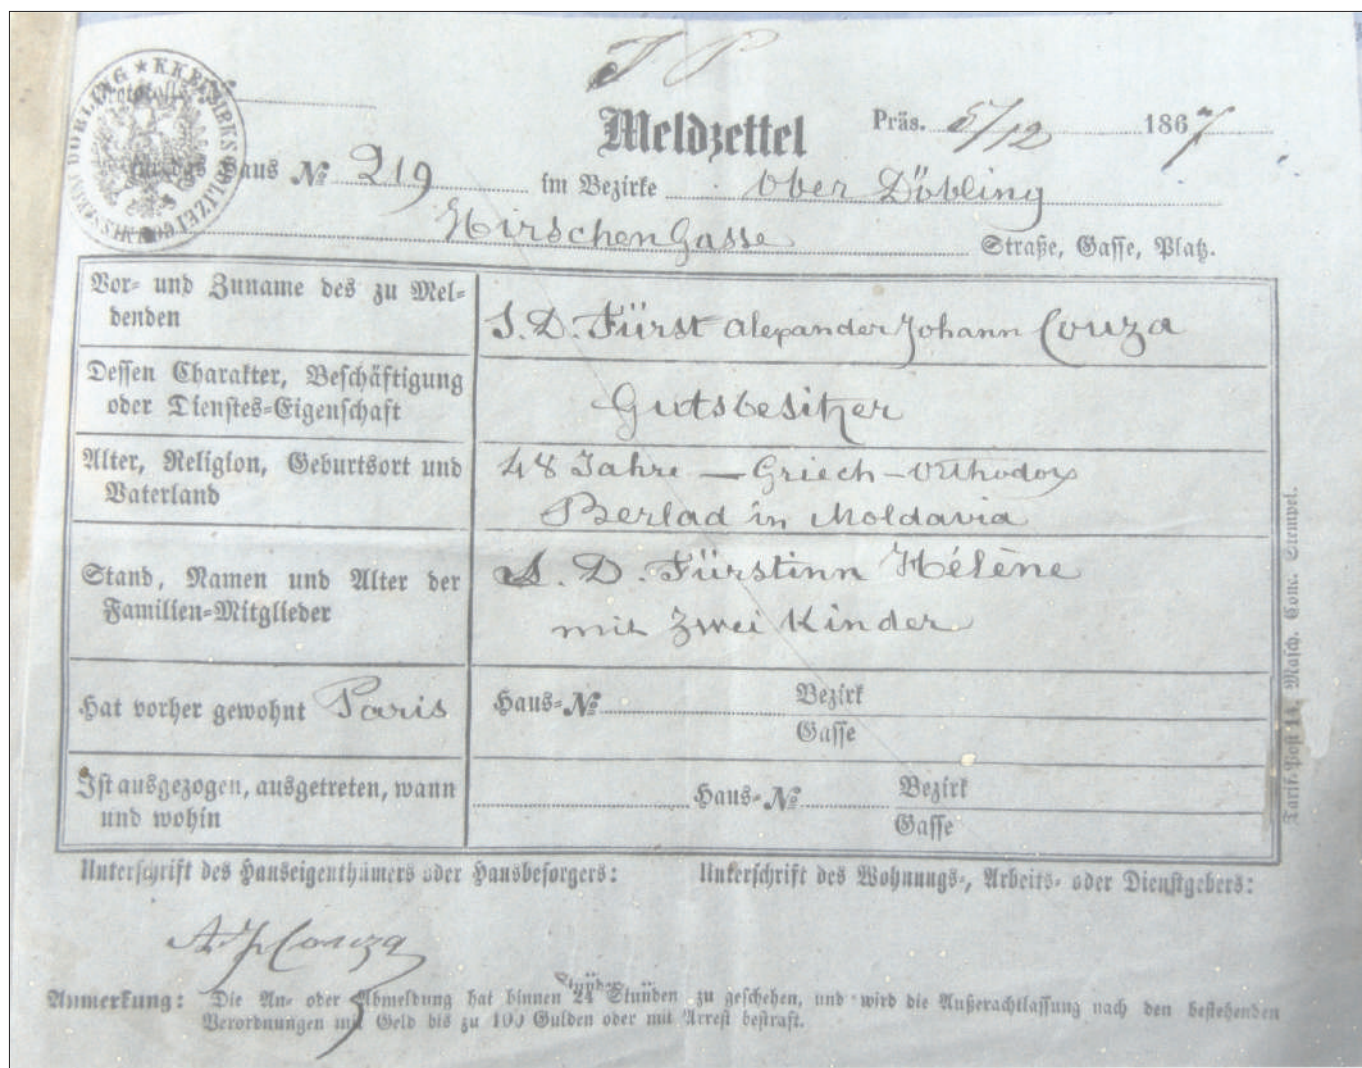 J P
Protokolls
K.K. BEZIRKS POLIZEI COMMISSARIAT DÖBLING
Meldzettel
Präs. 5/12 1867
Haus № 219 im Bezirke Ober Döbling
Hirschen Gasse Straße, Gasse, Platz.
Vor- und Zuname des zu Mel-
denden
S. D. Fürst Alexander Johann Couza
Dessen Charakter, Beschäftigung
oder Dienstes-Eigenschaft
Gutsbesitzer
Alter, Religion, Geburtsort und
Vaterland
48 Jahre — Griech-Orthodox
Berlad in Moldavia
Stand, Namen und Alter der
Familien-Mitglieder
S. D. Fürstinn Hélène
mit zwei Kinder
Hat vorher gewohnt Paris
Haus-№ Bezirk
Gasse
Ist ausgezogen, ausgetreten, wann
und wohin
Haus-№ Bezirk
Gasse
Unterschrift des Hauseigenthümers oder Hausbesorgers:
Unterschrift des Wohnungs-, Arbeits- oder Dienstgebers:
A J Couza
Anmerkung: Die An- oder Abmeldung hat binnen 24 Stunden zu geschehen, und wird die Außerachtlassung nach den bestehenden
Verordnungen mit Geld bis zu 100 Gulden oder mit Arrest bestraft.
Tarif-Post 14. Masch. Conc. Stempel.